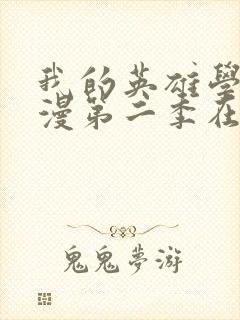 我的英雄學
漫第二季在
鬼鬼夢游